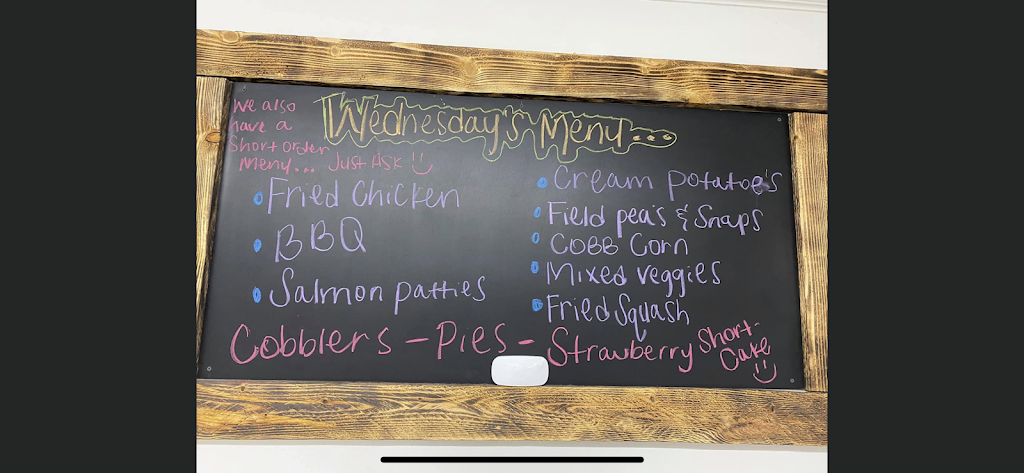 We also
have a
Short Order
Menu... Just Ask
Wednesday's Menu...
• Fried Chicken
• BBQ
• Salmon patties
• Cream potatoe's
• Field pea's & Snaps
• COBB Corn
• Mixed veggies
• Fried Squash
Cobblers - Pies - Strawberry Short-
Cake